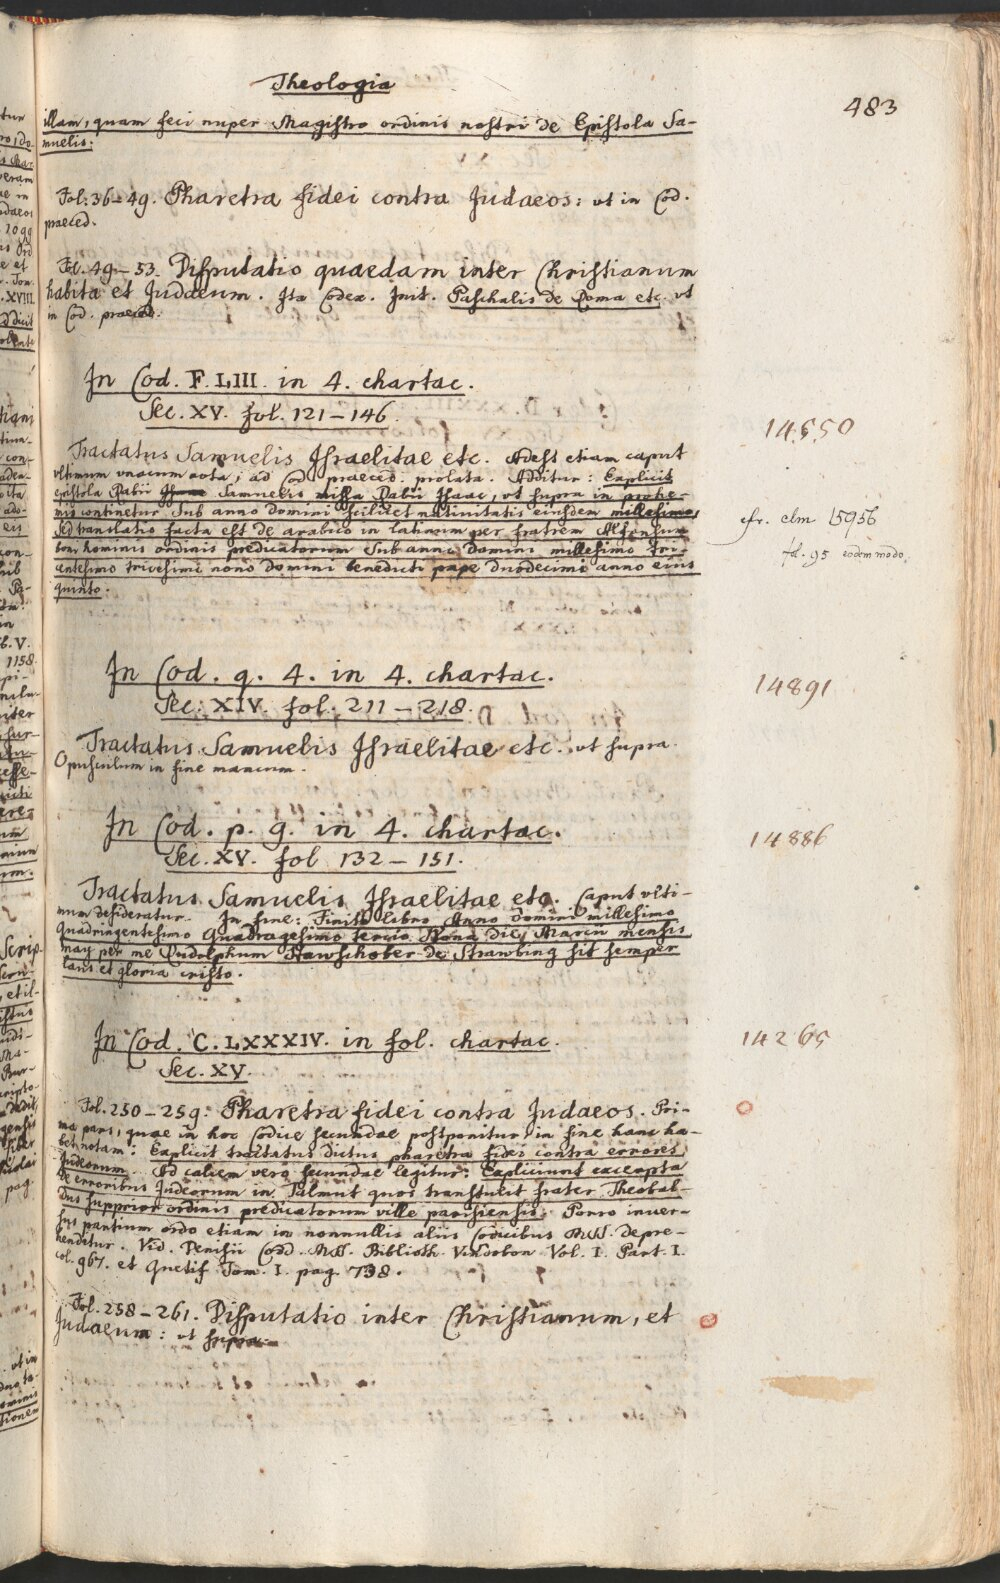 Theologia
483
illam, quam feci nuper Magistro ordinis nostri de Epistola Sa-
muelis:
Fol: 36-49. Pharetra fidei contra Judaeos: ut in Cod.
praeced.
Fol. 49-53. Disputatio quaedam inter Christianum
habita et Judaeum. Ita Codex. Init. Paschalis de Roma etc. ut
in Cod. praeced.
In Cod. F. LIII. in 4. chartac.
Sec. XV. fol. 121-146.
14550
Tractatus Samuelis Israelitae etc. Adest etiam caput
vltimum vnacum nota, ad Cod. praeced. prolata. Additur: Explicit
epistola Rabii Samuelis missa Rabii Isaac, vt supra in prohe-
mio continetur Sub anno Domini scilicet natiuitatis eiusdem millesimo,
Sed translatio facta est de arabico in latinum per fratrem Alfonsum
bon hominis ordinis predicatorum Sub anno Domini millesimo tri-
centesimo tricesimo nono Domini benedicti pape duodecimi anno eius
quinto.
cfr. clm 15956
fol. 95 eodem modo.
In Cod. q. 4. in 4. chartac.
Sec. XIV. fol. 211-218.
14891
Tractatus Samuelis Israelitae etc. ut supra.
Opusculum in fine mancum.
In Cod. p. 9. in 4. chartac.
Sec. XV. fol 132-151.
14886
Tractatus Samuelis Israelitae etc. Caput vlti-
mum desideratur. In fine: Finito libro Anno domini millesimo
Quadringentesimo Quadragesimo tercio Nona die Marcii mensis
may per me Rudolphum Hawschober de Strawbing sit semper
laus et gloria cristo.
In Cod. C. LXXXIV. in fol. chartac.
Sec. XV.
14265
Fol. 250-259: Pharetra fidei contra Judaeos. Pri-
ma pars, quae in hoc Codice secundae postponitur in fine hanc ha-
bet notam: Explicit tractatus dictus pharetra fidei contra errores
Judeorum. Ad calcem vero secundae legitur: Expliciunt excerpta
de erroribus Judeorum in Talmut quos transtulit frater Theobal-
dus supprior ordinis predicatorum ville parisiensis. Porro inuer-
sus partium ordo etiam in nonnullis aliis Codicibus MSS. depre-
henditur. Vid. Denisii Codd. MSS. Biblioth. Vindobon Vol. I. Part. I.
col. 967. et Quetif Tom. I. pag. 738.
Fol. 258-261. Disputatio inter Christianum, et
Judaeum: ut supra.